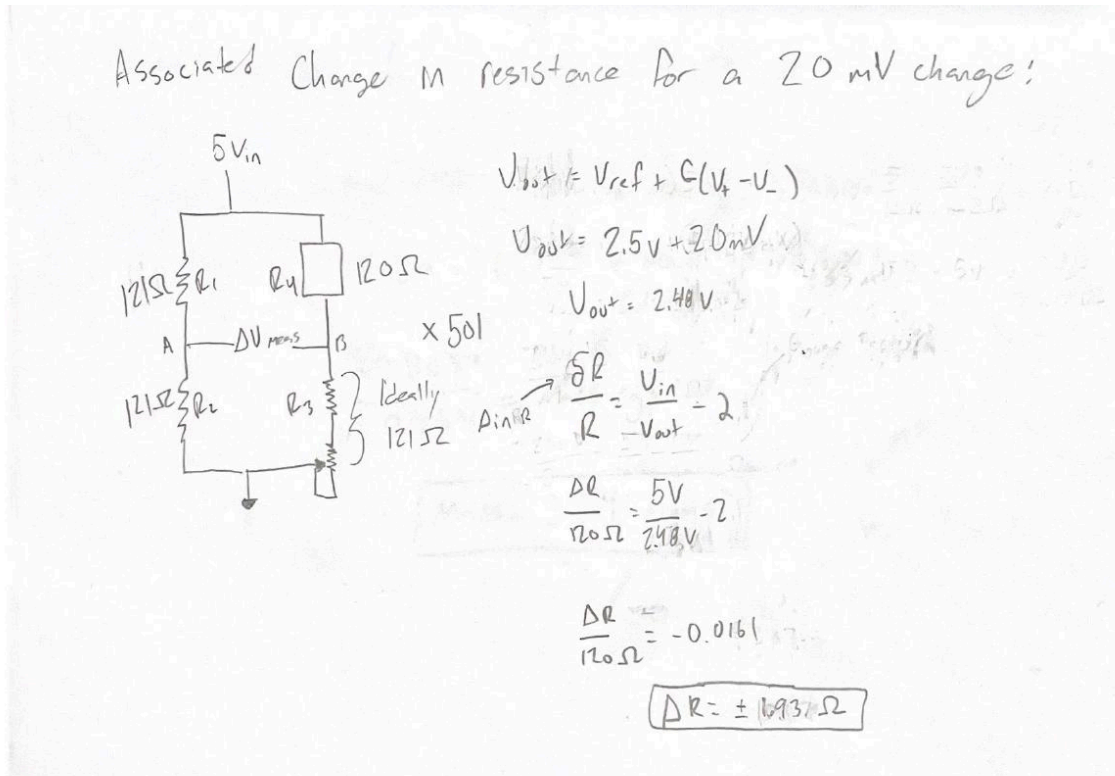 Associated Change in resistance for a 20 mV change:
5Vin
121Ω R1
R4 120Ω
A ΔV meas B
x 501
121Ω R2
R3 Ideally
121Ω
Vout = Vref + G(V+ - V-)
Vout = 2.5V + 20mV
Vout = 2.48 V
Δ in R
δR/R = Vin/-Vout - 2
ΔR/120Ω = 5V/2.48V - 2
ΔR/120Ω = -0.0161
ΔR = ± 1.93 Ω